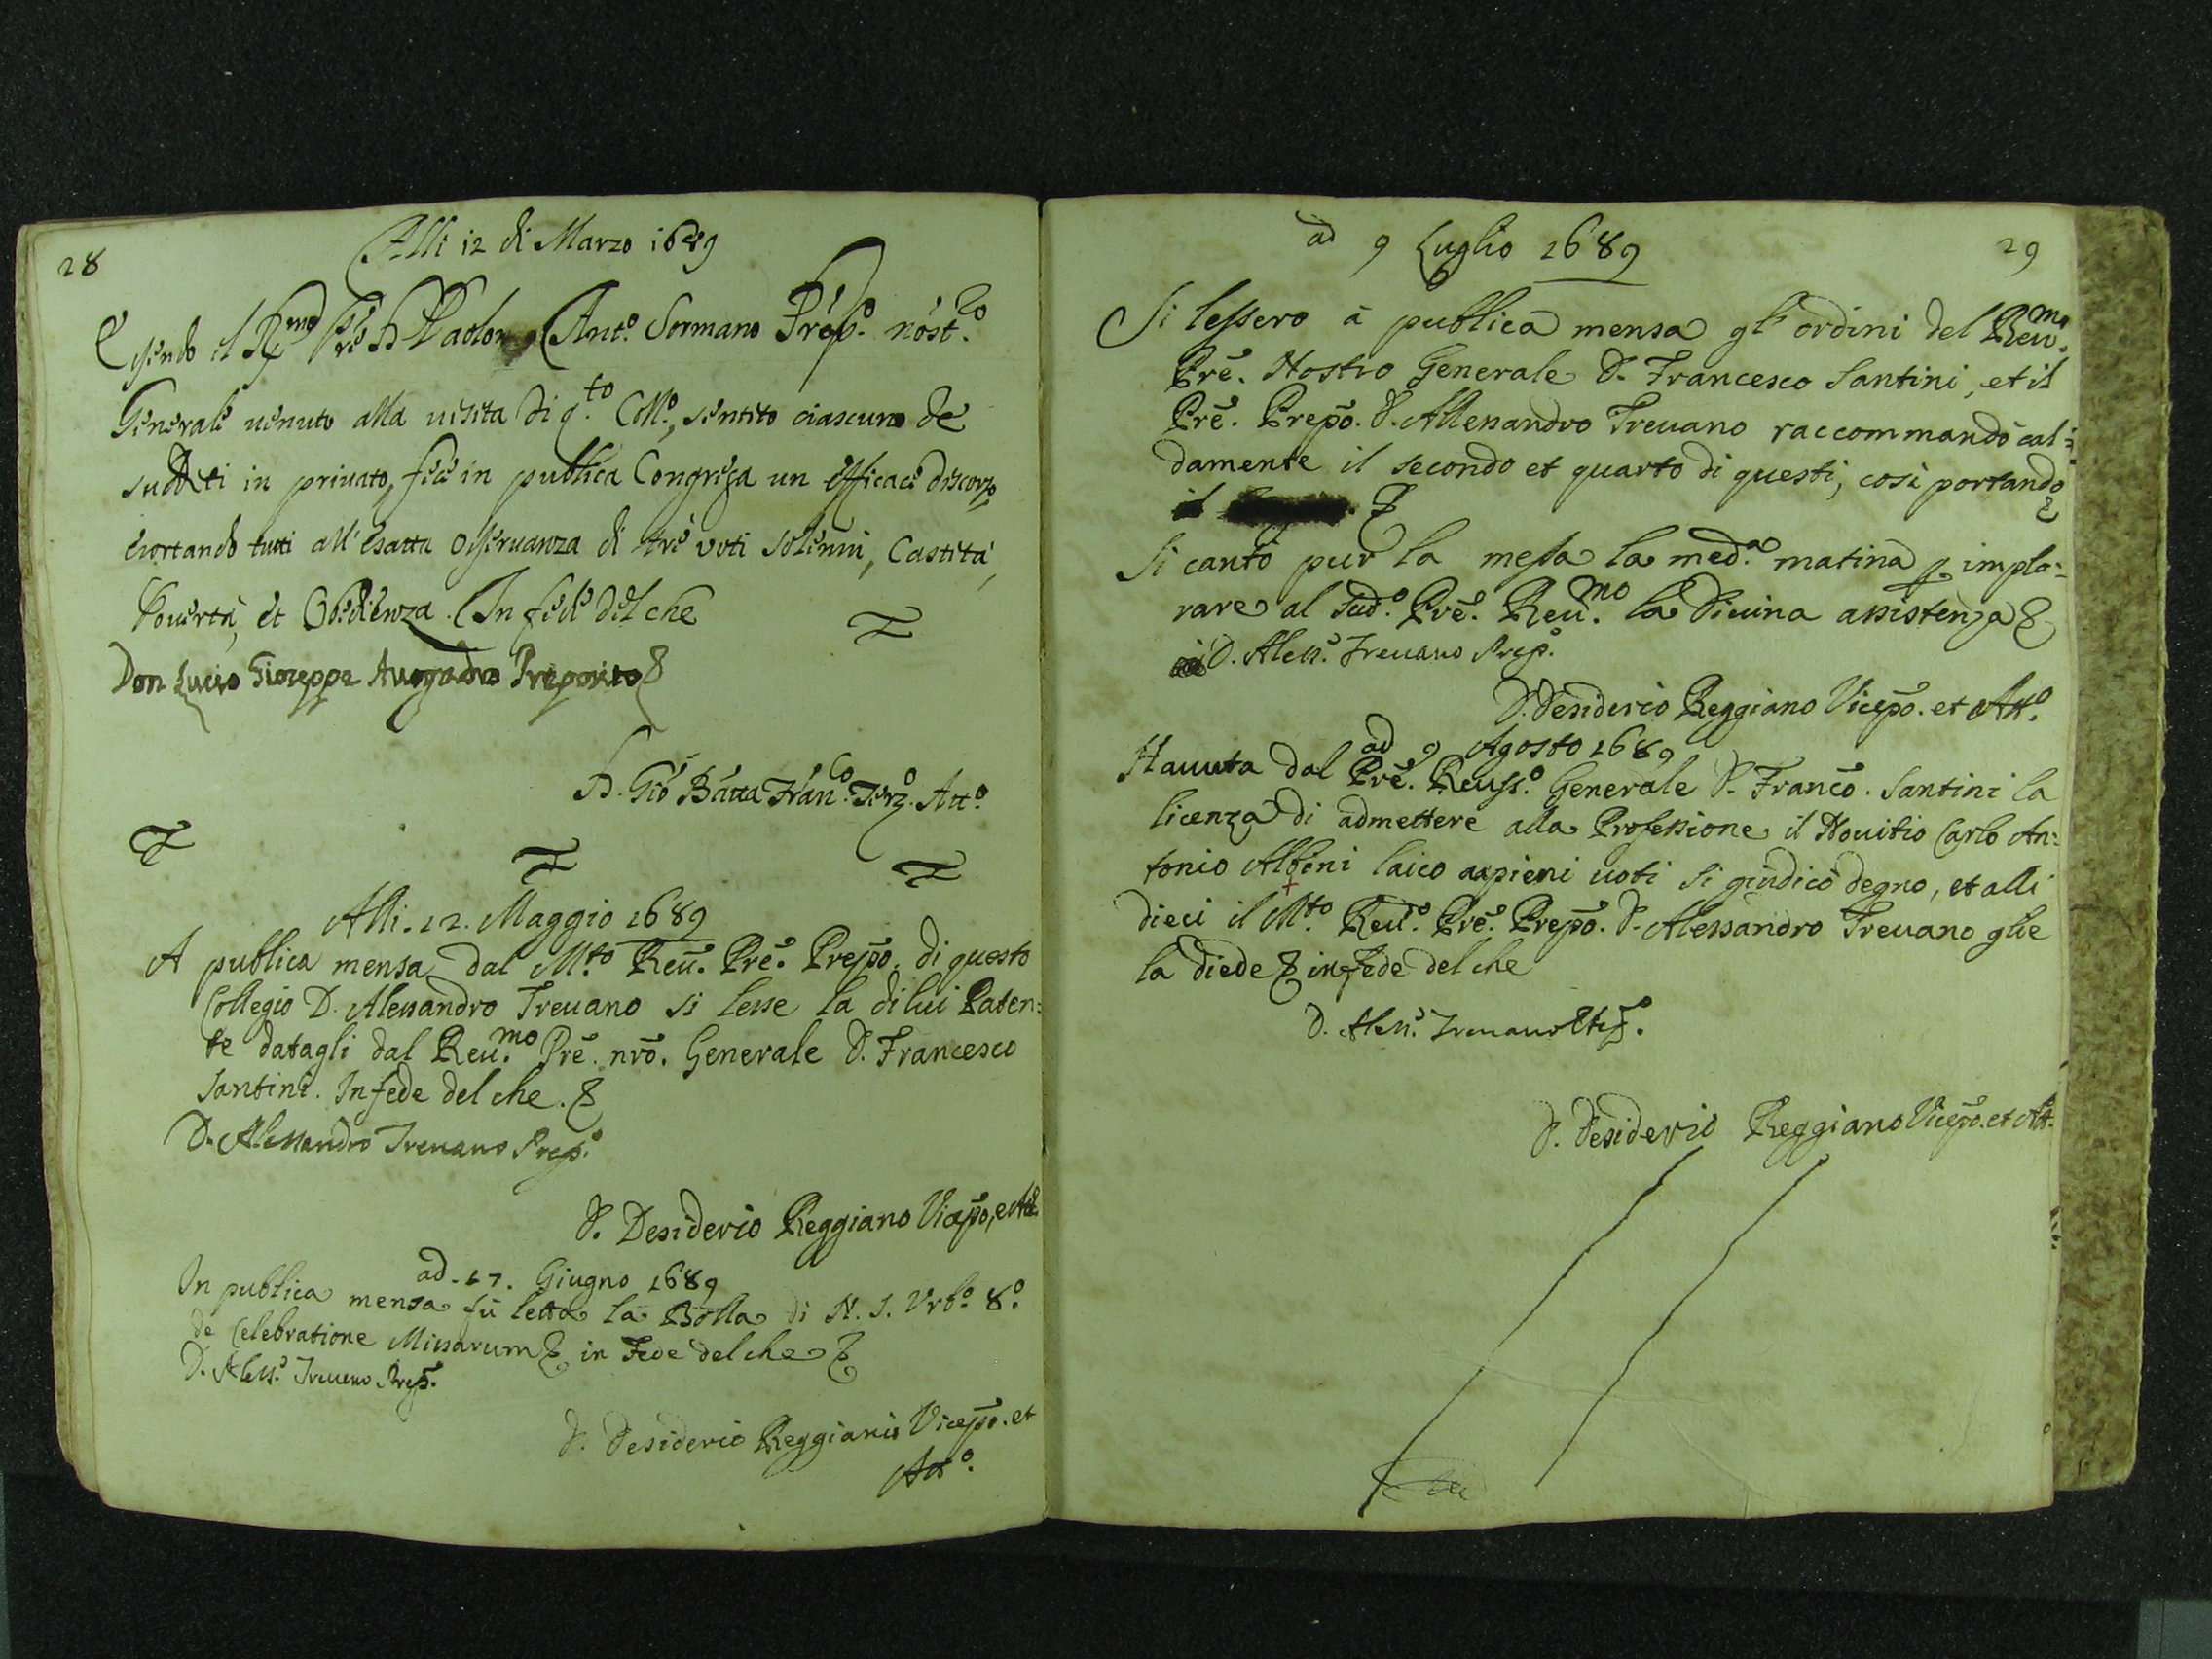 28
Alli 12 di Marzo 1689
Essendo il R.mo Pre D Paolo Ant.o Sormano Prep.o nost.o
Generale uenuto alla uisita di q.to Coll.o, sentito ciascuno de
sudditi in priuato, fece in publica Congreg.a un efficace discorso
esortando tutti all'esatta osseruanza di trè voti solenni, Castità,
Pouertà, et Obedienza. In fede del che
Don Lucio Gioseppe Auogadro Preposito
D. Gio Batta Fran.co Terz.o Att.o
Alli. 12. Maggio 1689
A publica mensa dal M.to Reu. Prē. Prepō. di questo
Collegio D. Alessandro Treuano si lesse la di lui Paten:
te datagli dal Reu.mo Prē. nrō. Generale D. Francesco
Santini. In fede del che. &
D. Alessandro Treuano Prep.o
D. Desiderio Reggiano Vicepō, et Att.o
ad. 17. Giugno 1689
In publica mensa fù letta la Bolla di N. S. Vrb.o 8.o
de Celebratione Missarum & in Fede del che &
D. Aless.o Treuano Prep.o
D. Desiderio Reggiano Vicepō. et
Att.o
29
ad 9 Luglio 1689
Si lessero à publica mensa gl'ordini del Reu.mo
Prē. Nostro Generale D. Francesco Santini, et il
Prē. Prepō. D. Allessandro Treuano raccommandò cal:
damente il secondo et quarto di questi, così portando
il &
Si cantò pur la messa la med.a matina p implo:
rare al sud.o Prē. Reu.mo la Diuina assistenza &
D. Aless.o Treuano Prep.o
D. Desiderio Reggiano Vicepō. et Att.o
ad 9 Agosto 1689
Hauuta dal Prē. Reuss.o Generale D. Francō. Santini la
licenza di admettere alla Professione il Nouitio Carlo An:
tonio Albini laico a pieni uoti si giudicò degno, et alli
dieci il M.to Reu.o Prē. Prepō. D. Alessandro Treuano glie
la diede & in fede del che
D. Aless.o Treuano
D. Desiderio Reggiano Vicepō. et Att.